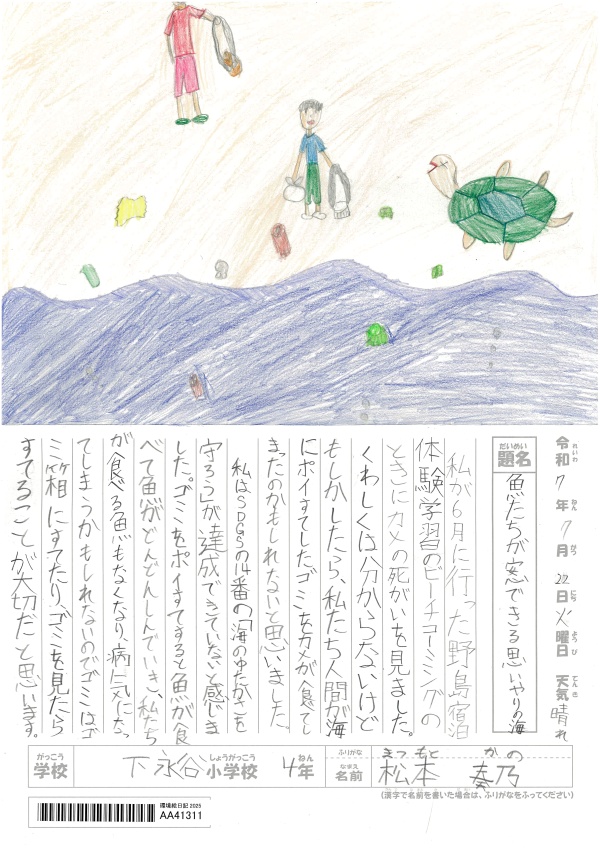 令和7年7月22日火曜日 天気 晴れ
れいわ ねん がつ にち ようび てんき
だいめい
題名 魚たちが安心できる思いやりの海
私が6月に行った野島宿泊
体験学習のビーチコーミングの
ときにカメの死がいを見ました。
くわしくは分からないけど
もしかしたら、私たち人間が海
にポイすてしたゴミをカメが食べてし
まったのかもしれないと思いました。
私はSDGsの14番の「海のゆたかさを
守ろう」が達成できていないと感じま
した。ゴミをポイすてすると魚が食
べて魚がどんどんしんでいき、私たち
が食べる魚もなくなり、病気になっ
てしまうかもしれないのでゴミはゴ
ミ箱にすてたり、ゴミを見たら
すてることが大切だと思います。
がっこう しょうがっこう ねん ふりがな まつもと かの
学校 下永谷小学校 4年 なまえ 名前 松本 奏乃
(漢字で名前を書いた場合は、ふりがなをふってください)
環境絵日記 2025
AA41311